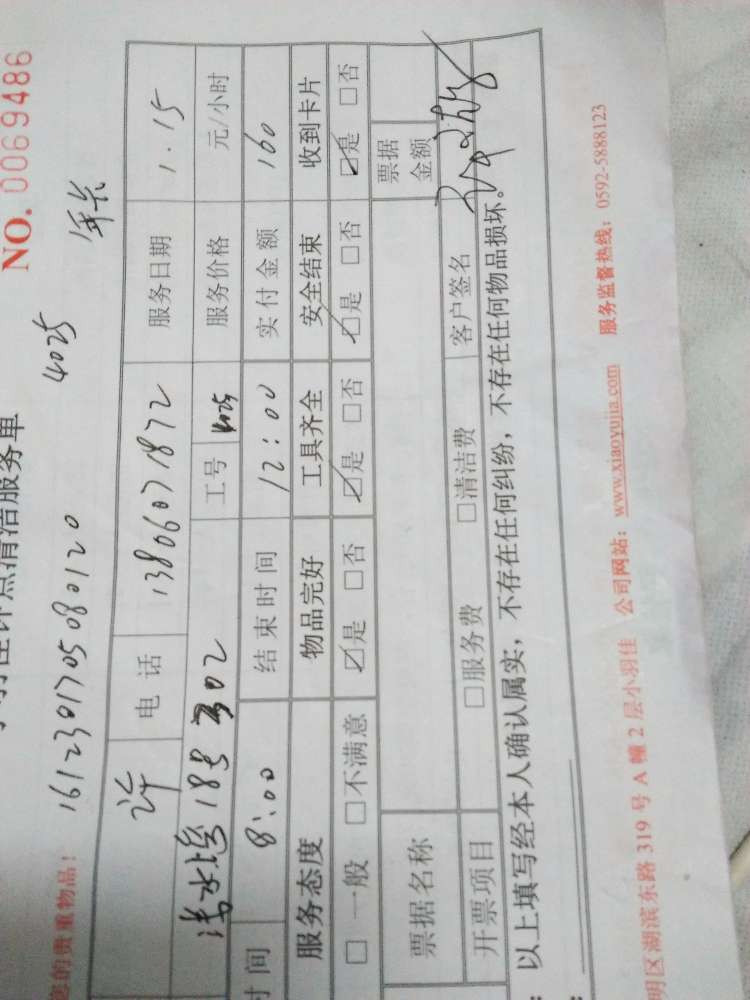 NO. 0069486
钟点清洁服务单
息的贵重物品! 1612301705080120 4025
许 电话 13806071872 服务日期 1.15
18号 302 工号 4025 服务价格 元/小时
时间 8:00 结束时间 12:00 实付金额 160
服务态度 物品完好 工具齐全 安全结束 收到卡片
□ 一般 □不满意 ☑是 □否 ☑是 □否 ☑是 □否 ☑是 □否
票据名称 票据金额
开票项目 □服务费 □清洁费 客户签名
以上填写经本人确认属实,不存在任何纠纷,不存在任何物品损坏。
明区湖滨东路 319 号 A 幢 2 层小羽佳 公司网站: www.xiaoyujia.com 服务监督热线: 0592-5888123